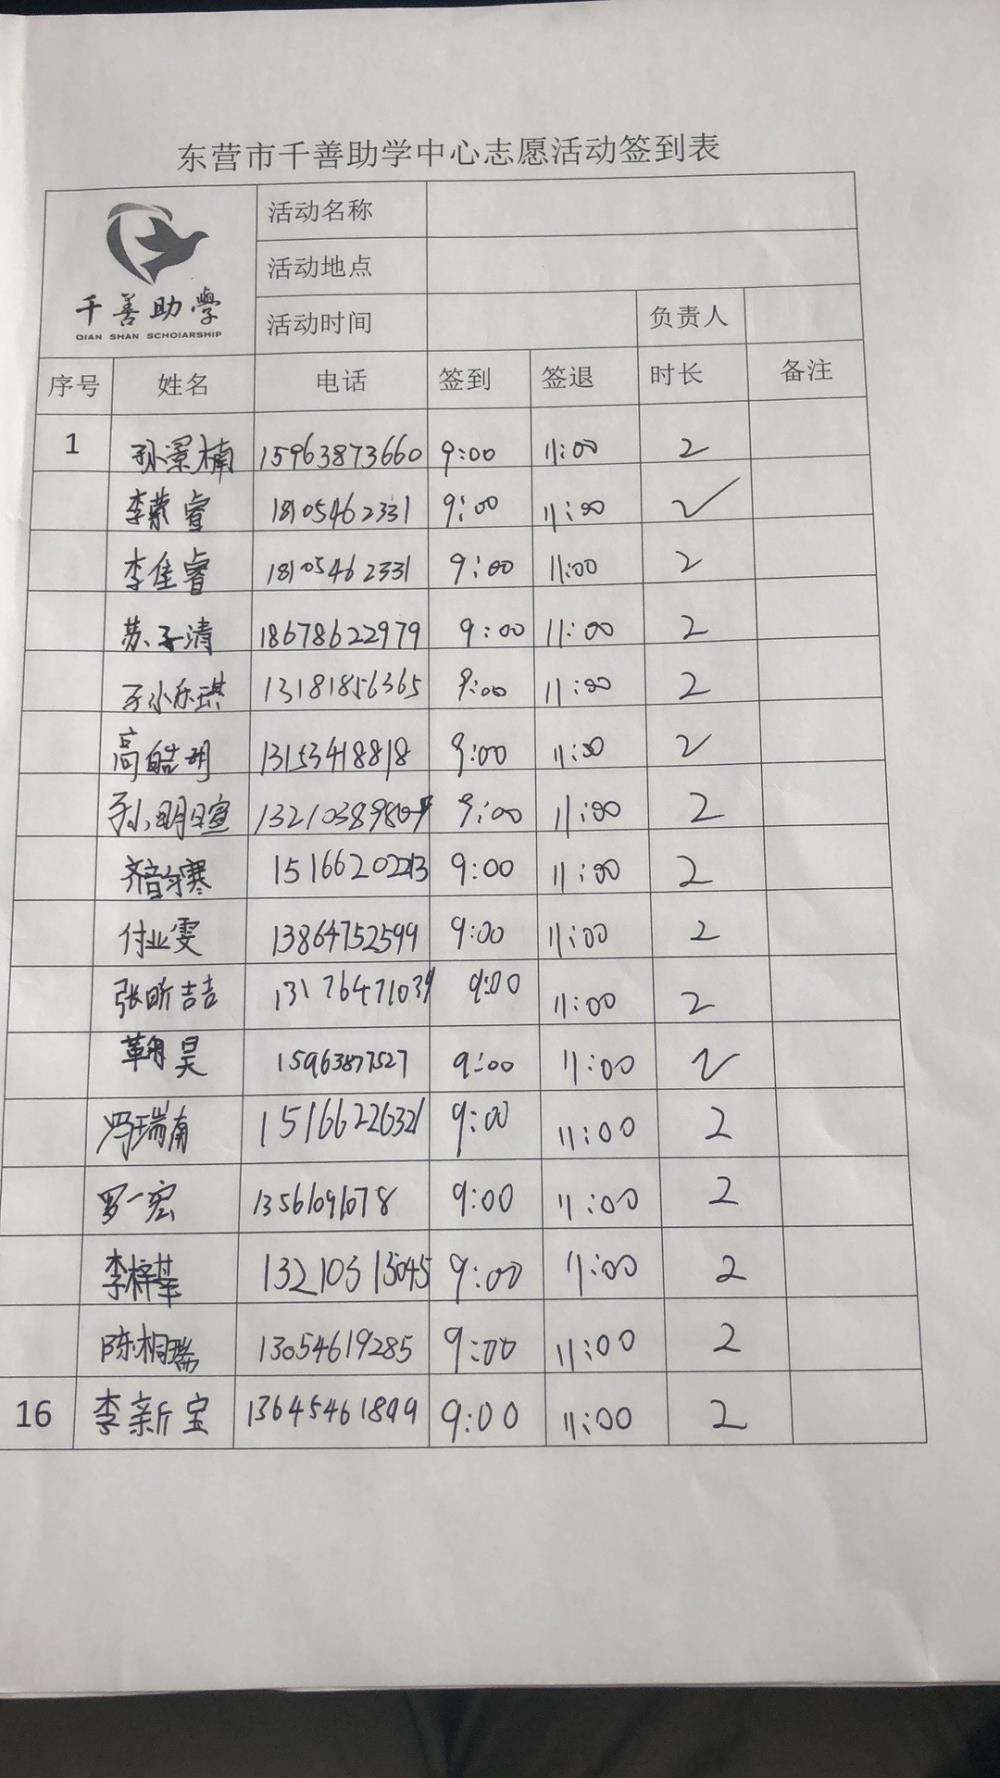 东营市千善助学中心志愿活动签到表
千善助學
QIAN SHAN SCHOIARSHIP
活动名称
活动地点
活动时间 负责人
序号 姓名 电话 签到 签退 时长 备注
1 孙景楠 15963873660 9:00 11:00 2
李荣睿 18105462331 9:00 11:00 2
李佳睿 18105462331 9:00 11:00 2
苏子清 18678622979 9:00 11:00 2
孙乐琪 13181856365 9:00 11:00 2
高皓玥 13153418818 9:00 11:00 2
孙明暄 9:00 11:00 2
9:00 11:00 2
付业雯 13864752599 9:00 11:00 2
张昕喆 13176471039 9:00 11:00 2
鞠昊 15963877527 9:00 11:00 2
冯瑞南 15166226321 9:00 11:00 2
罗一宏 9:00 11:00 2
李梓莘 13210313045 9:00 11:00 2
陈桐瑞 13054619285 9:00 11:00 2
16 李新宝 13645461899 9:00 11:00 2